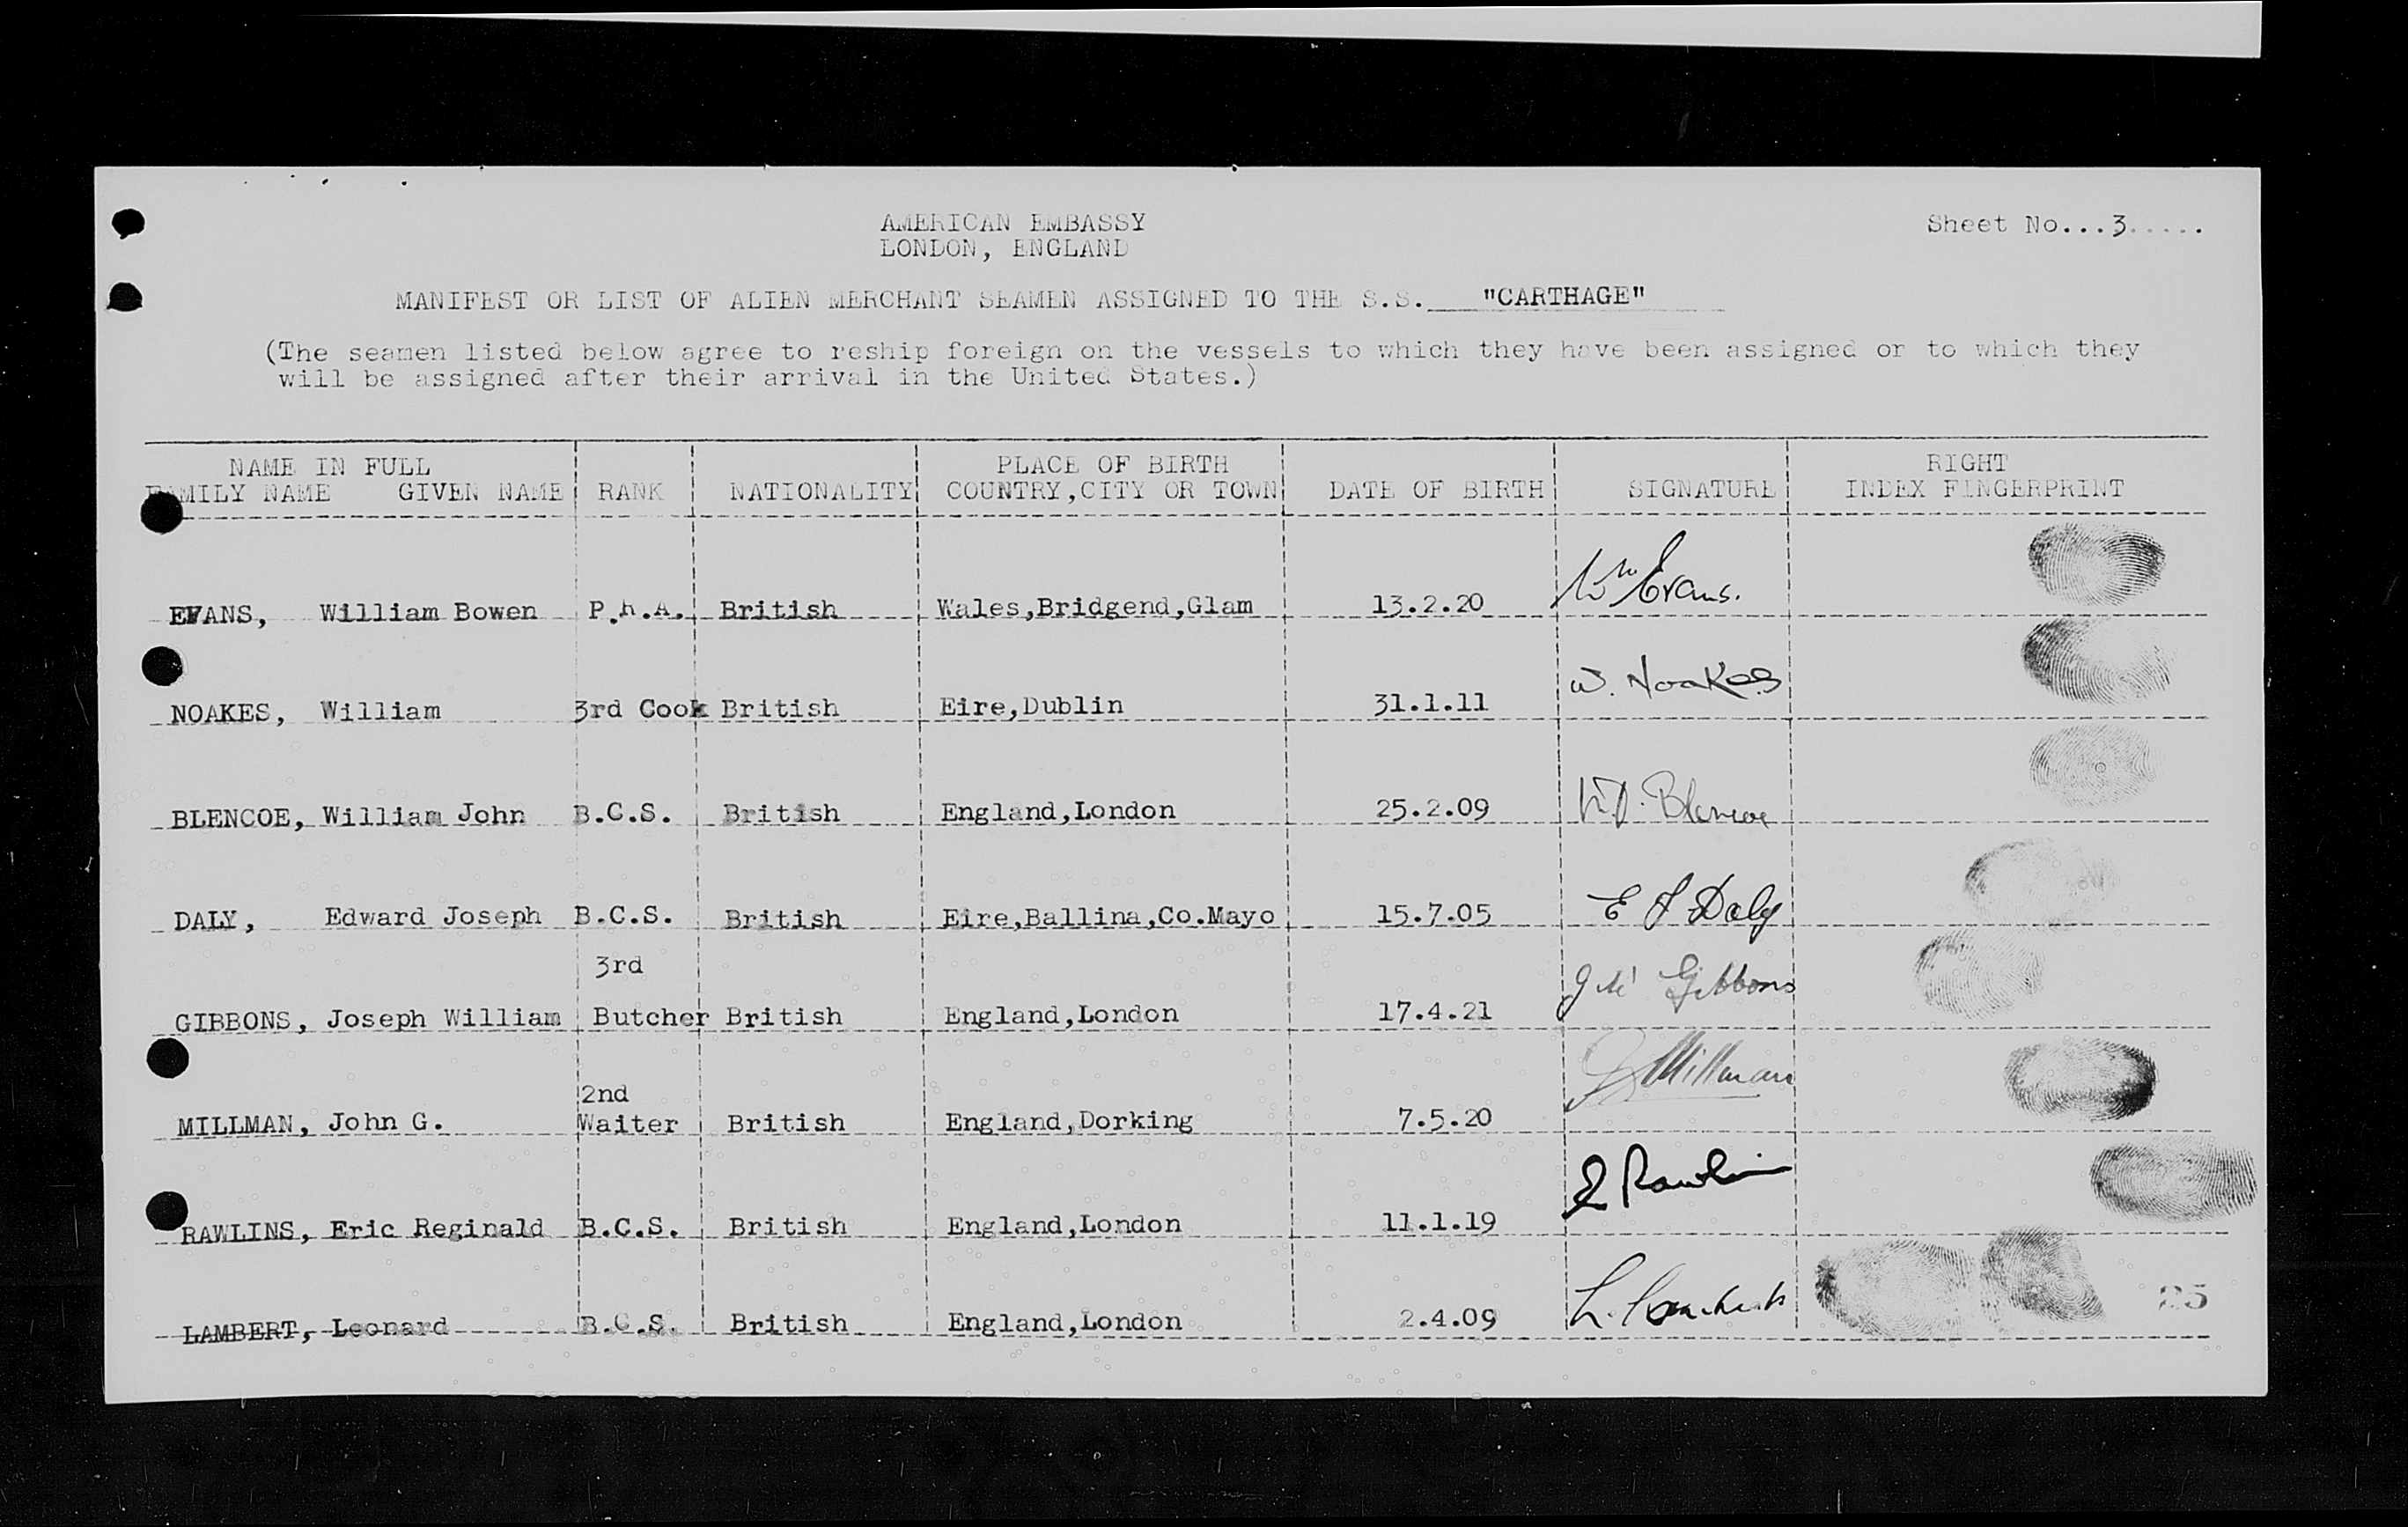 AMERICAN EMBASSY
LONDON, ENGLAND
Sheet No...3.....
MANIFEST OR LIST OF ALIEN MERCHANT SEAMEN ASSIGNED TO THE S.S. "CARTHAGE"
(The seamen listed below agree to reship foreign on the vessels to which they have been assigned or to which they
will be assigned after their arrival in the United States.)
NAME IN FULL PLACE OF BIRTH RIGHT
FAMILY NAME GIVEN NAME RANK NATIONALITY COUNTRY,CITY OR TOWN DATE OF BIRTH SIGNATURE INDEX FINGERPRINT
EVANS, William Bowen P.R.A. British Wales,Bridgend,Glam 13.2.20 Wm Evans.
NOAKES, William 3rd Cook British Eire,Dublin 31.1.11 W. Noakes
BLENCOE, William John B.C.S. British England,London 25.2.09 W.J. Blencoe
DALY, Edward Joseph B.C.S. British Eire,Ballina,Co.Mayo 15.7.05 E J Daly
3rd
GIBBONS, Joseph William Butcher British England,London 17.4.21 J W Gibbons
2nd
MILLMAN, John G. Waiter British England,Dorking 7.5.20 Millman
RAWLINS, Eric Reginald B.C.S. British England,London 11.1.19 E Rawlins
LAMBERT, Leonard B.C.S. British England,London 2.4.09 L. Lambert
25